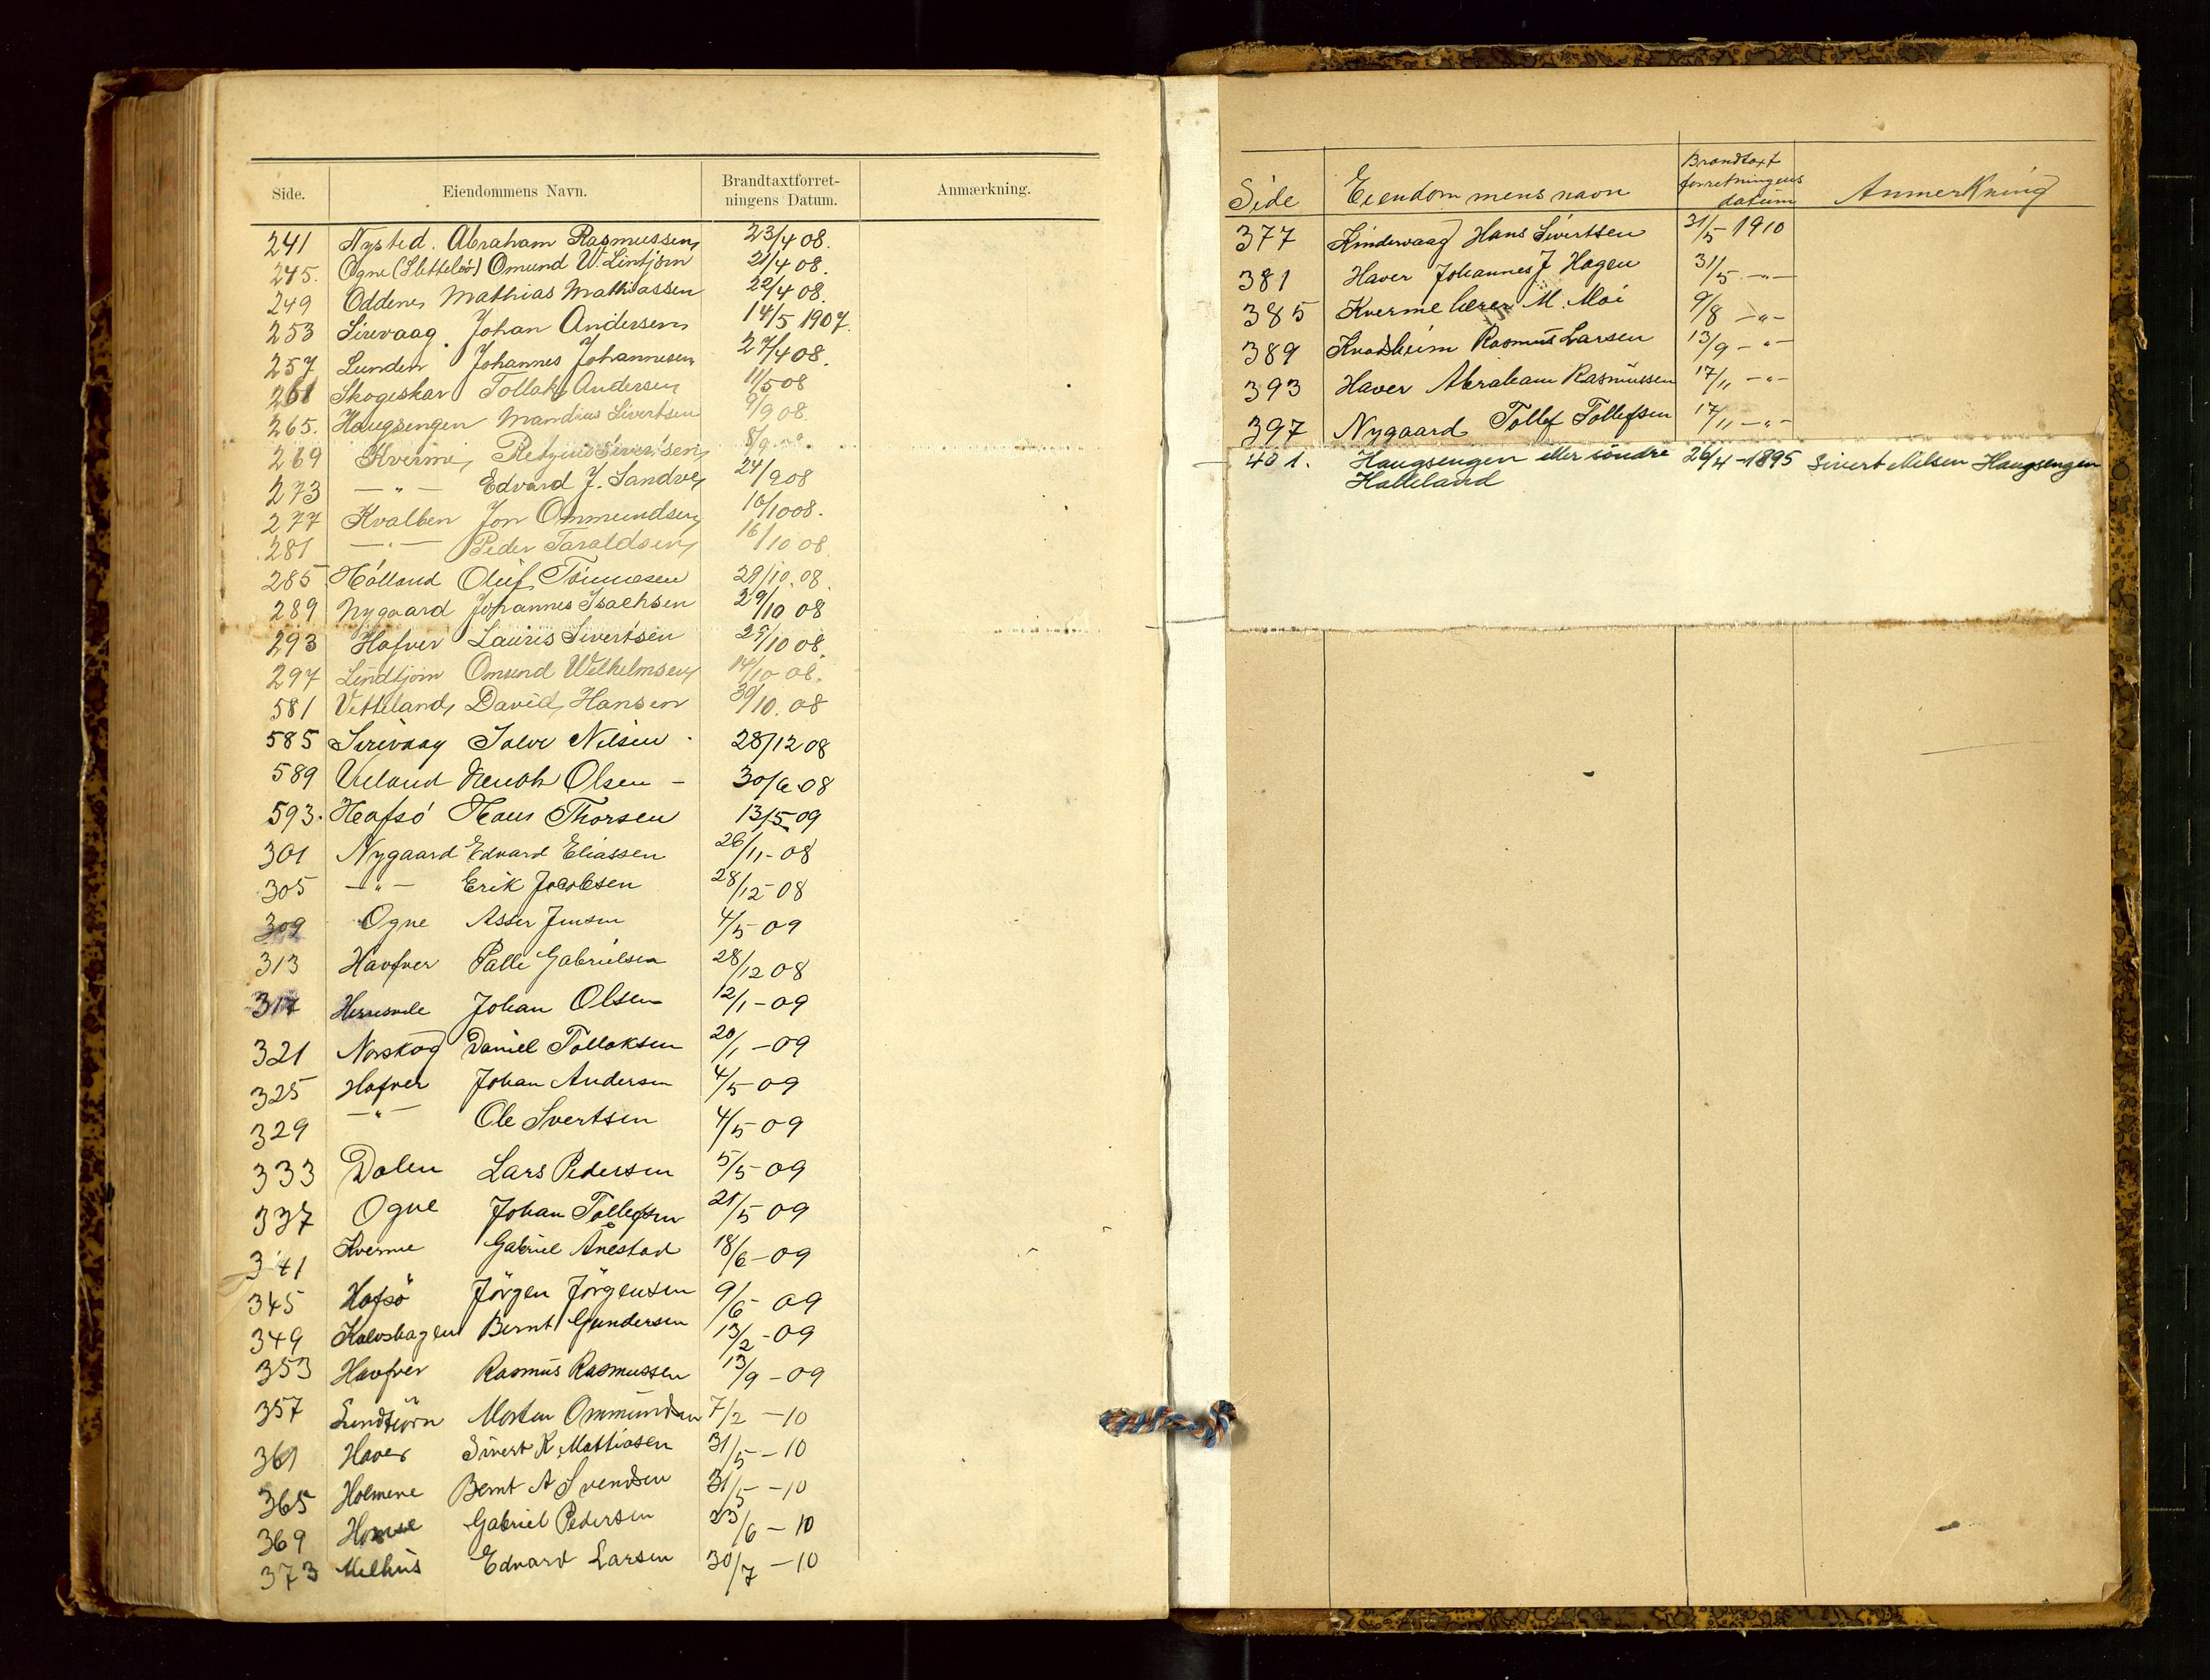 Side. Eiendommens Navn. Brandtaxtforret-
ningens Datum. Anmærkning.
241 Nysted. Abraham Rasmussen 23/4 08.
245. Ogne (Sletteløö) Omund W. Lintjørn 21/4 08.
249 Oddenes Mathias Mathiassen 22/4 08.
253 Sirevaag. Johan Andersen 14/5 1907.
257 Lunden Johannes Johannesen 27/4 08.
261 Skogeskar Tollak Andersen 11/5 08
265. Haugsengen Mandius Sivertsen 9/9 08
269 Kverme, Sivertsen 8/9 -"-
273 -"- Edvard J. Sandve 24/9 08
277 Kvalben Jon Ommundsen 16/10 08.
281 -"- Peder Taraldsen 16/10 08.
285 Hölland Oluf Tönnesen 29/10. 08.
289 Nygaard Johannes Isachsen 29/10 08
293 Hafver Lauris Sivertsen 29/10 08.
297 Lindtjørn Omund Wilhelmsen 14/10 08.
581 Vetteland, David, Hansen 30/10. 08
585 Sirivaag Salve Nilsen 28/12 08
589 Ueland Olsen - 30/6 08
593. Hafsö Hans Thorsen 13/5 09
301 Nygaard Edvard Eliassen 26/11-08
305 -"- Erik Jacobsen 28/12-08
309 Ogne Asser Jensen 4/5-09
313 Havfver Palle Gabrielsen 28/12 08
317 Johan Olsen 12/1-09
321 Norskog Daniel Tollaksen 20/1-09
325 Hafver Johan Andersen 4/5-09
329 -"- Ole Sivertsen 4/5-09
333 Dalen Lars Pedersen 5/5-09
337 Ogne Johan Tollefsen 21/5-09
341 Kverme Gabriel Ånestad 18/6-09
345 Hafsö Jörgen Jörgensen 9/6-09
349 Kalvshagen Bernt Gundersen 13/2-09
353 Havfver Rasmus Rasmussen 13/9-09
357 Lindtjörn Morten Ommundsen 7/2-10
361 Haver Sivert K Mattiasen 31/5-10
365 Holmene Bernt A Svendsen 31/5-10
369 Gabriel Pedersen 23/6-10
373 Melhus Edvard Larsen 30/7-10
Side Eiendommens navn Brandtaxt
forretningens
datum Anmerkning
377 Kindervaag Hans Sivertsen 31/5-1910
381 Haver Johannes J Hagen 31/5 -"-
385 Kverme lærer M. Moi 9/8 -"-
389 Kvalsheim Rasmus Larsen 13/9 -"-
393 Haver Abraham Rasmussen 17/11 -"-
397 Nygaard Tollef Tollefsen 17/11 -"-
401. Haugsengen eller söndre 26/4-1895 Sivert Nilsen Haugsengen
Hatteland